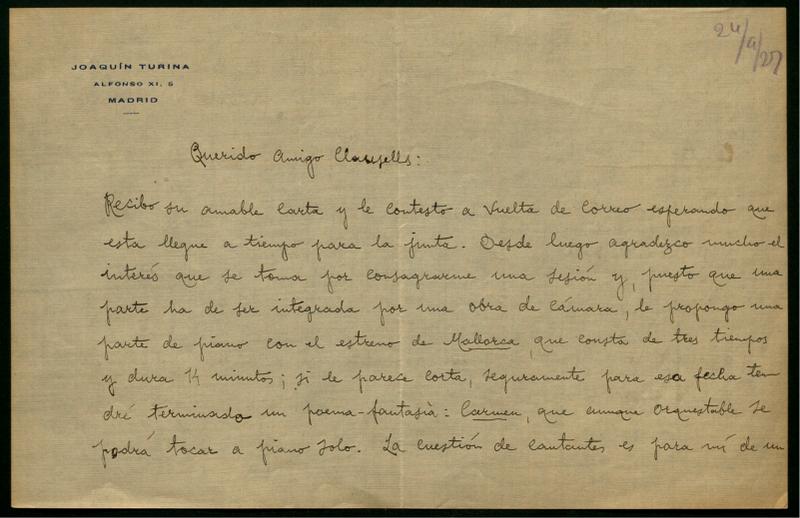 24/9/27
JOAQUÍN TURINA
ALFONSO XI, 5
MADRID
Querido amigo Clausells:
Recibo su amable carta y le contesto a vuelta de correo esperando que
esta llegue a tiempo para la junta. Desde luego agradezco mucho el
interés que se toma por consagrarme una sesión y, puesto que una
parte ha de ser integrada por una obra de cámara, le propongo una
parte de piano con el estreno de Mallorca, que consta de tres tiempos
y dura 14 minutos; si le parece corta, seguramente para esa fecha ten-
dré terminado un poema-fantasía: Carmen, que aunque orquestable se
podrá tocar a piano solo. La cuestión de cantantes es para mí de un